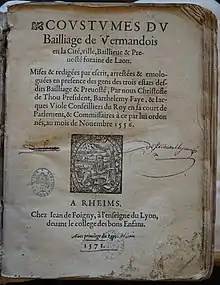 COVSTVMES DV
Bailliage de Vermandois
en la Cité, ville, Baillieuë &
Preuosté foraine de Laon.
Mises & redigées par escrit, arrestées & emolo-
guées en presence des gens des trois estats des-
dits Bailliage & Preuosté, Par nous Christofle
de Thou President, Barthelemy Faye, & Iac-
ques Viole Conseilliers du Roy en sa court de
Parlement, & Commissaires à ce par lui ordon
nés, au mois de Nouembre 1556.
A RHEIMS.
Chez Iean de Foigny, à l'enseigne du Lyon,
deuant le college des bons Enfans.
Auec priuilege du Roy
1571.